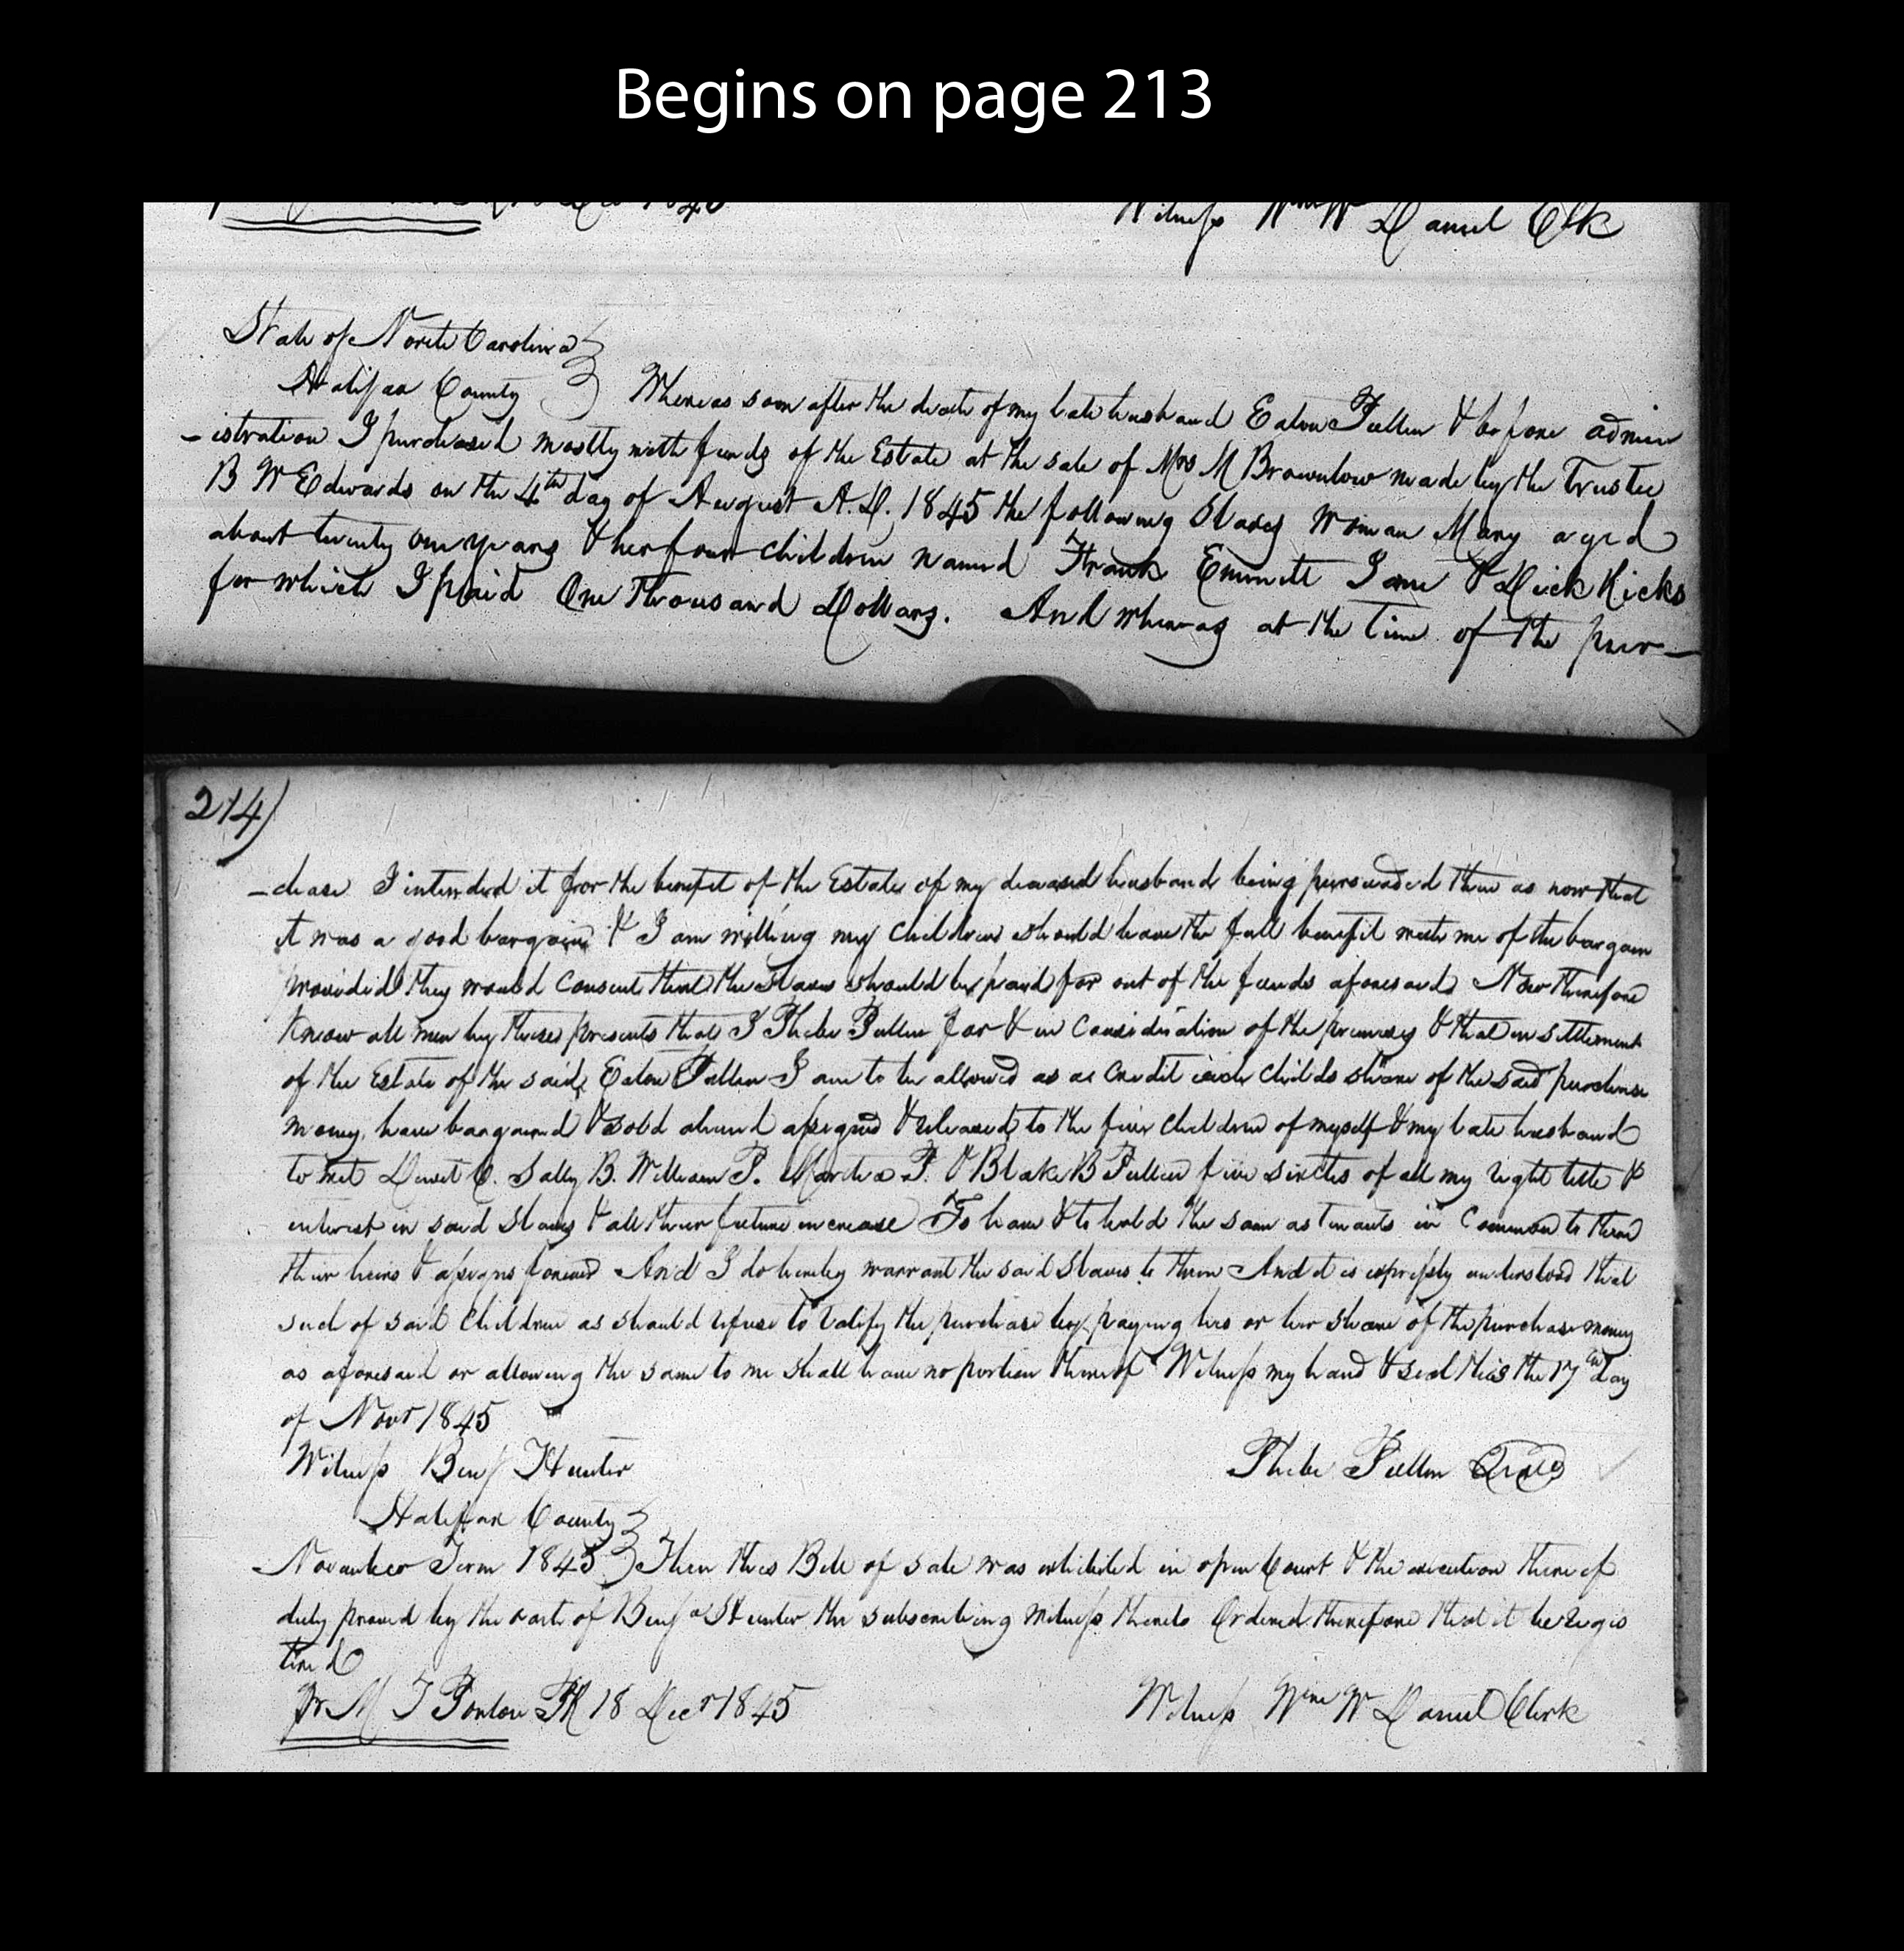 Begins on page 213
Witness Wm W Daniel Clk
State of North Carolina
Halifax County Whereas soon after the death of my late husband Eaton Pullen & before admin
-istration I purchased mostly with funds of the Estate at the sale of Mrs M Brownlow made by the Trustee
B W Edwards on the 4th day of August A.D. 1845 the following Slaves Woman Mary aged
about twenty one years & her four children named Frank Emmett Jane & Dick Hicks
for which I paid One Thousand Dollars. And whereas at the Time of the pur-
214)
-chase I intended it for the benefit of the Estate of my deceased husband being persuaded then as now that
it was a good bargain & I am willing my children should have the full benefit with me of the bargain
provided they would Consent that the slaves should be paid for out of the funds aforesaid Now therefore
Know all men by these presents that I Phebe Pullen for & in consideration of the premises & that in settlement
of the Estate of the said Eaton Pullen I am to be allowed as a credit each childs share of the said purchase
money, have bargained & sold aliened assigned & released to the five children of myself & my late husband
to wit Dewit C. Sally B. William P. Martha P. & Blake B Pullen five sixths of all my right title &
interest in said Slaves & all their future increase To have & to hold the same as tenants in Common to them
their heirs & assigns forever And I do hereby warrant the said Slaves to them And it is expressly understood that
such of said Children as should refuse to ratify the purchase by paying his or her share of the purchase money
as aforesaid or allowing the same to me shall have no portion thereof Witness my hand & seal this the 17th day
of Novr 1845
Witness Benj Hunter Phebe Pullen Seal
Halifax County
November Term 1845 Then this Bill of sale was exhibited in open Court & the execution thereof
duly proved by the oath of Benja Hunter the subscribing witness thereto Ordered therefore that it be Regis
tered
Pr M T Ponton PR 18 Decr 1845 Witness Wm W Daniel Clerk